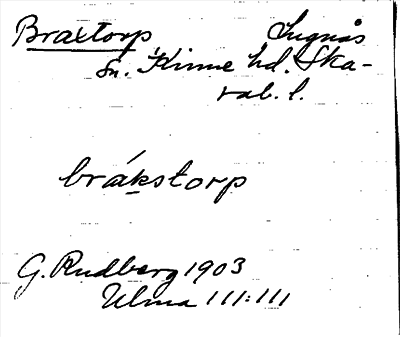 Braxtorp Lugnås
sn. Kinne hd. Ska-
rab. l.
brákstorp
G. Rudberg 1903
Ulma 111:111